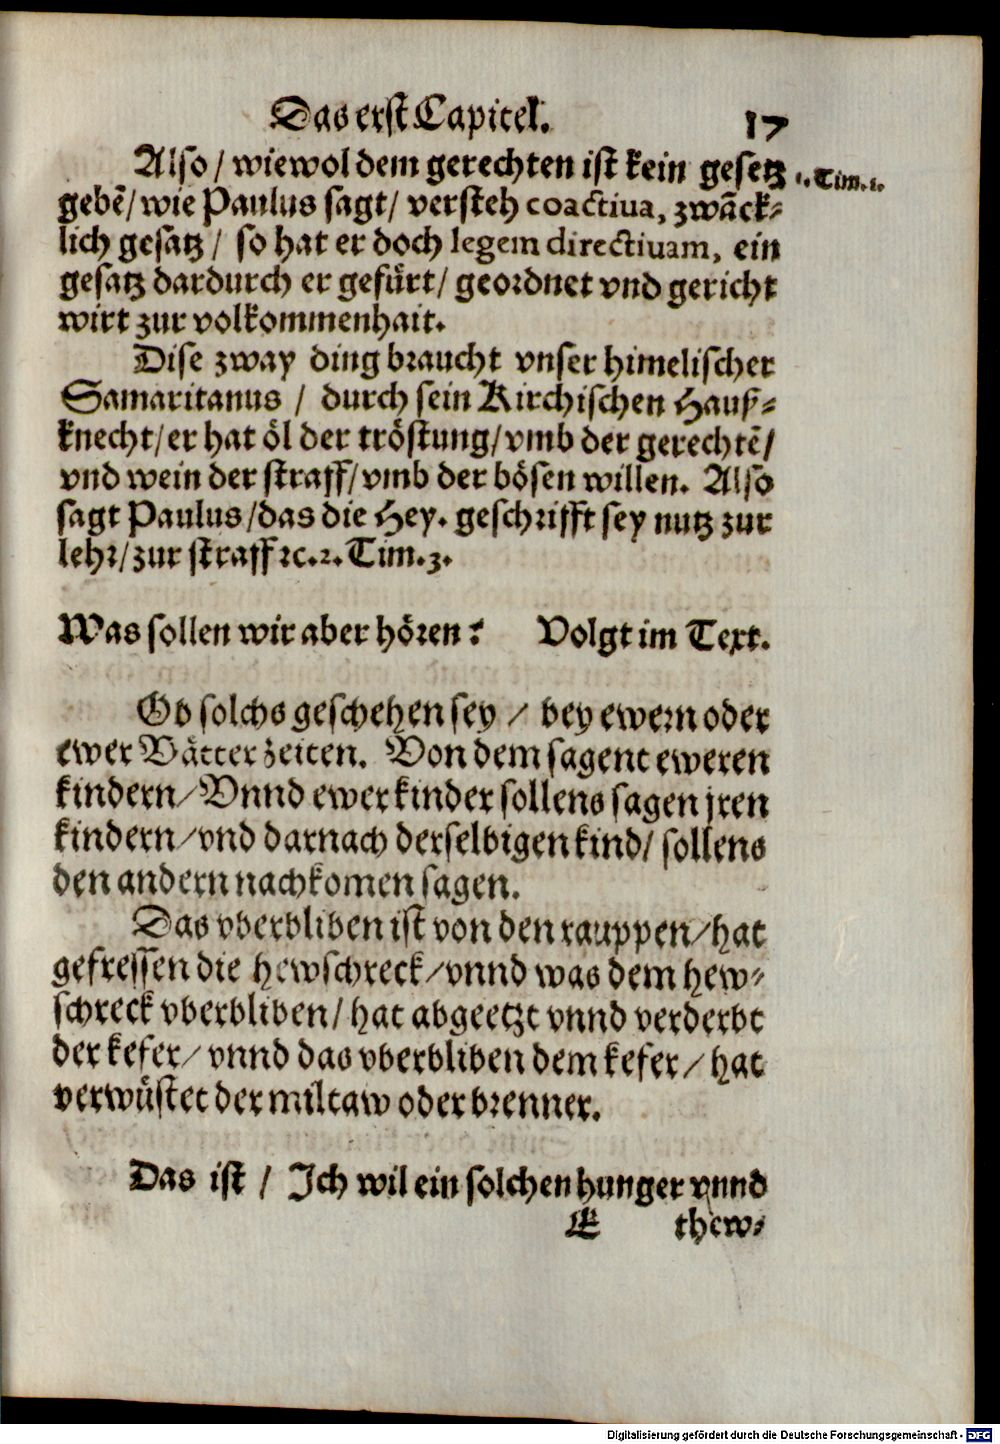 Das erst Capitel. 17
Also / wiewol dem gerechten ist kein gesetz 1. Tim. 1.
gebẽ / wie Paulus sagt / versteh coactiua, zwãck-
lich gesatz / so hat er doch legem directiuam, ein
gesatz dardurch er gefürt / geordnet vnd gericht
wirt zur volkommenhait.
Dise zway ding braucht vnser himelischer
Samaritanus / durch sein Kirchischen Hauß-
knecht / er hat öl der tröstung / vmb der gerechtẽ /
vnd wein der straff / vmb der bösen willen. Also
sagt Paulus / das die Hey. geschrifft sey nutz zur
lehr / zur straff ꝛc. 2. Tim. 3.
Was sollen wir aber hören? Volgt im Text.
Ob solchs geschehen sey / bey ewern oder
ewer Vätter zeiten. Von dem sagent eweren
kindern / Vnnd ewer kinder sollens sagen jren
kindern / vnd darnach derselbigen kind / sollens
den andern nachkomen sagen.
Das vberbliben ist von den rauppen / hat
gefressen die hewschreck / vnnd was dem hew-
schreck vberbliben / hat abgeetzt vnnd verderbt
der kefer / vnnd das vberbliben dem kefer / hat
verwüstet der miltaw oder brenner.
Das ist / Ich wil ein solchen hunger vnnd
E thew-
Digitalisierung gefördert durch die Deutsche Forschungsgemeinschaft - DFG